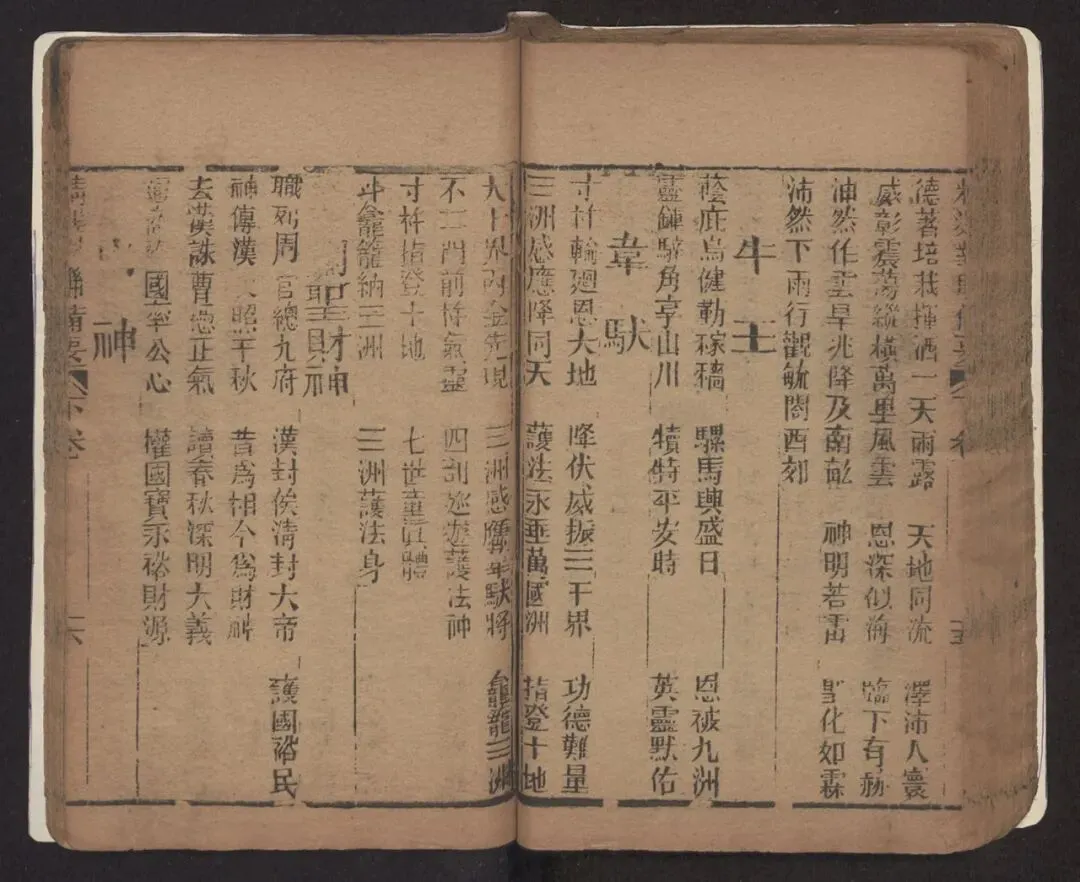 德著培栽揮洒一天雨露 天地同流 澤沛人寰
威彰震蕩縱橫萬里風雲 恩深似海 臨下有赫
油然作雲旱兆降及南畝 神明若雷 聖化如霖
沛然下雨行觀毓閤西郊
牛王
蔭庇烏健勤稼穡 騾馬興盛日 恩被九洲
靈鍾騂角享山川 犢特平安時 英靈默佑
韋馱
寸杵輪廻恩大地 降伏威振三千界 功德難量
三洲感應降同天 護法永垂萬國洲 指登十地
大千界內金光現 三洲感應韋馱將 龕籠三洲
不二門前符氣靈 四部巡遊護法神
寸杵指登十地 七世童真體
斗龕籠納三洲 三洲護法身
聖財神
職列周官總九府 漢封侯清封大帝 護國裕民
神傳漢 照千秋 昔為相今為財神
去漢誅曹憑正氣 讀春秋深明大義
國率公心 權國寶永裕財源
神
備要 下卷